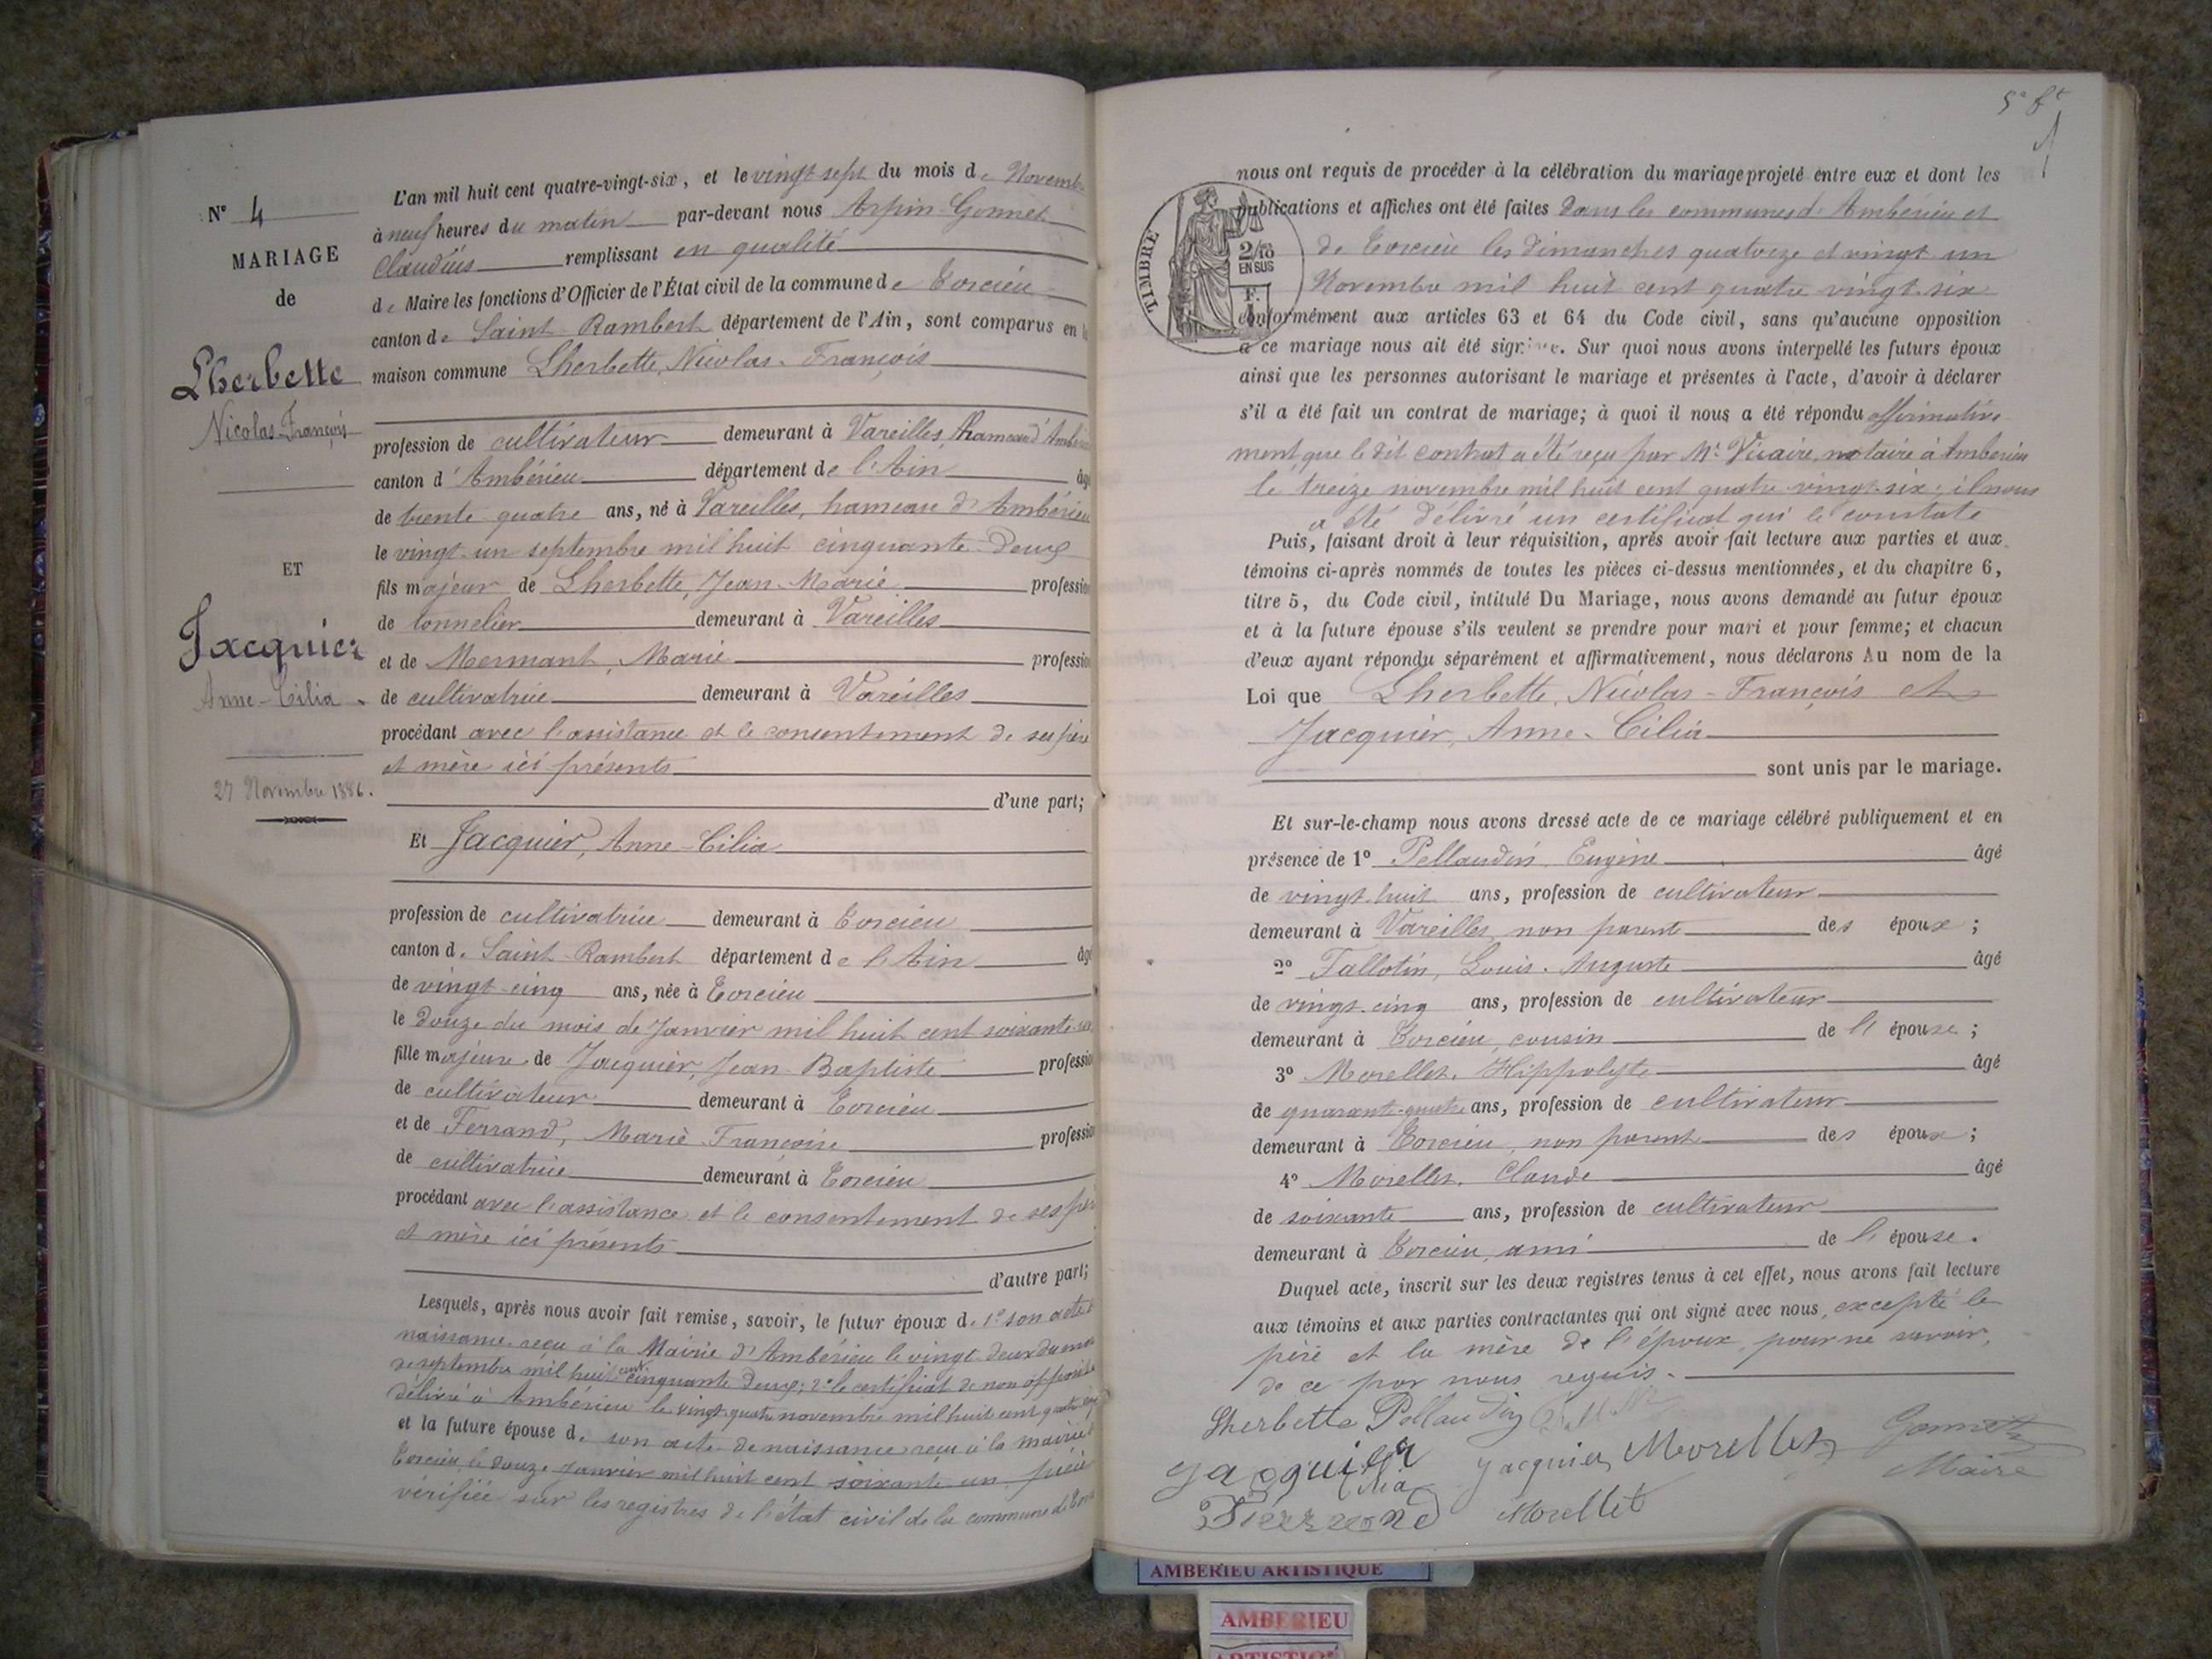 N° 4
MARIAGE
de
Lherbette
Nicolas-François
ET
Jacquier
Anne-Cilia
27 Novembre 1886.
L'an mil huit cent quatre-vingt-six, et le vingt sept du mois de Novemb
à neuf heures du matin par-devant nous Arpin-Gonnet
Claudius remplissant en qualité
de Maire les fonctions d'Officier de l'État civil de la commune de Torcieu
canton de Saint-Rambert département de l'Ain, sont comparus en
maison commune Lherbette, Nicolas-François
profession de cultivateur demeurant à Vareilles, hameau d'Ambérieu
canton d'Ambérieu département de l'Ain âgé
de trente quatre ans, né à Vareilles, hameau d'Ambérieu
le vingt-un septembre mil huit cinquante-Deux
fils majeur de Lherbette, Jean-Marie profession
de tonnelier demeurant à Vareilles
et de Mermant, Marie profession
de cultivatrice demeurant à Vareilles
procédant avec l'assistance et le consentement de ses père
et mère ici présents
d'une part;
Et Jacquier, Anne-Cilia
profession de cultivatrice demeurant à Torcieu
canton de Saint-Rambert département de l'Ain âgé
de vingt-cinq ans, née à Torcieu
le douze du mois de Janvier mil huit cent soixante-un
fille majeure de Jacquier, Jean-Baptiste profession
de cultivateur demeurant à Torcieu
et de Ferrand, Marie Françoise profession
de cultivatrice demeurant à Torcieu
procédant avec l'assistance et le consentement de ses père
et mère ici présents
d'autre part;
Lesquels, après nous avoir fait remise, savoir, le futur époux de 1° son acte d
naissance reçu à la Mairie d'Ambérieu le vingt-deux du mois
de septembre mil huit cent cinquante Deux; 2° le certificat de non opposition
délivré à Ambérieu le vingt quatre novembre mil huit cent quatre vingt
et la future épouse de son acte de naissance reçu à la mairie d
Torcieu le douze Janvier mil huit cent soixante-un pièce
vérifiée sur les registres de l'état civil de la commune de Torcieu
5e ft
TIMBRE
2/10
EN SUS
F.
nous ont requis de procéder à la célébration du mariage projeté entre eux et dont les
publications et affiches ont été faites Dans les communes d'Ambérieu et
de Torcieu les dimanches quatorze et vingt-un
Novembre mil huit cent quatre vingt-six
conformément aux articles 63 et 64 du Code civil, sans qu'aucune opposition
à ce mariage nous ait été signifiée. Sur quoi nous avons interpellé les futurs époux
ainsi que les personnes autorisant le mariage et présentes à l'acte, d'avoir à déclarer
s'il a été fait un contrat de mariage; à quoi il nous a été répondu affirmative
ment que le dit contrat a été reçu par Me Vicaire, notaire à Ambérieu
le treize novembre mil huit cent quatre vingt-six; il nous
a été délivré un certificat qui le constate
Puis, faisant droit à leur réquisition, après avoir fait lecture aux parties et aux
témoins ci-après nommés de toutes les pièces ci-dessus mentionnées, et du chapitre 6,
titre 5, du Code civil, intitulé Du Mariage, nous avons demandé au futur époux
et à la future épouse s'ils veulent se prendre pour mari et pour femme; et chacun
d'eux ayant répondu séparément et affirmativement, nous déclarons Au nom de la
Loi que Lherbette, Nicolas-François et
Jacquier, Anne-Cilia
sont unis par le mariage.
Et sur-le-champ nous avons dressé acte de ce mariage célébré publiquement et en
présence de 1° Pellaudin, Eugène âgé
de vingt-huit ans, profession de cultivateur
demeurant à Vareilles, non parent des époux;
2° Tallotin, Louis-Auguste âgé
de vingt-cinq ans, profession de cultivateur
demeurant à Torcieu, cousin de l'épouse;
3° Morellet, Hippolyte âgé
de quarante-quatre ans, profession de cultivateur
demeurant à Torcieu, non parent des époux;
4° Morellet, Claude âgé
de soixante ans, profession de cultivateur
demeurant à Torcieu, ami de l'épouse.
Duquel acte, inscrit sur les deux registres tenus à cet effet, nous avons fait lecture
aux témoins et aux parties contractantes qui ont signé avec nous, excepté le
père et la mère de l'époux, pour ne savoir,
de ce par nous requis.
Lherbette Pellaudin
Jacquier Cilia Jacquier Morellet Gonnet
Maire
Ferrand Morellet
AMBERIEU ARTISTIQUE
AMBERIEU
ARTISTIQUE